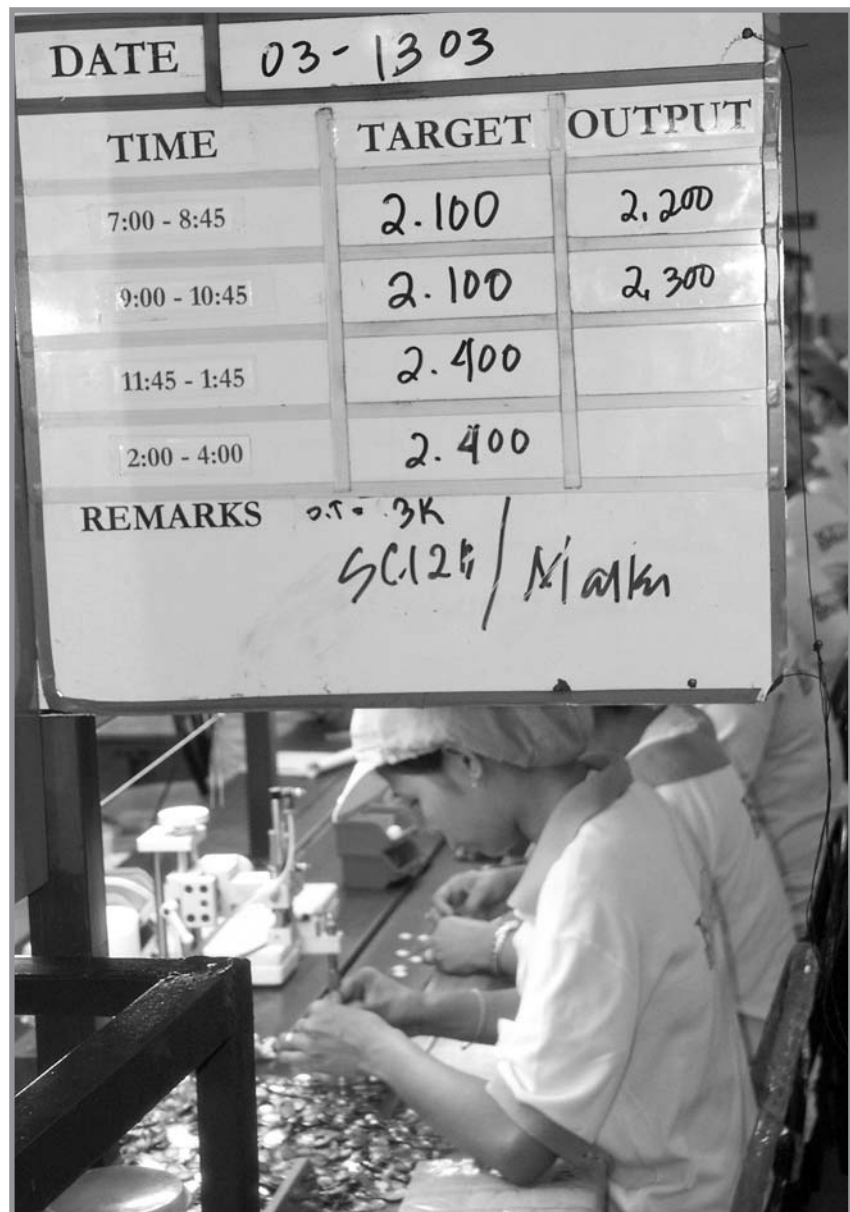 DATE 03-1303
TIME TARGET OUTPUT
7:00 - 8:45 2.100 2,200
9:00 - 10:45 2.100 2,300
11:45 - 1:45 2.400
2:00 - 4:00 2.400
REMARKS O.T- 3K